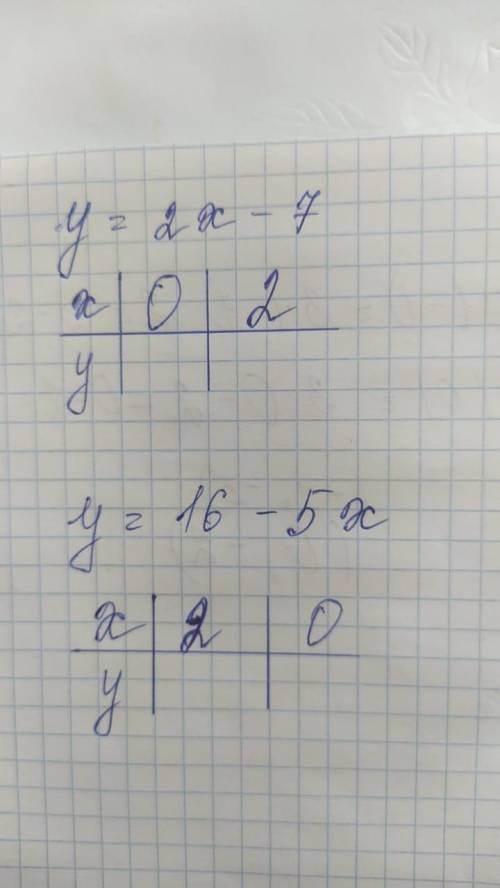 y = 2x - 7
x | 0 | 2
y | |
y = 16 - 5x
x | 2 | 0
y | |